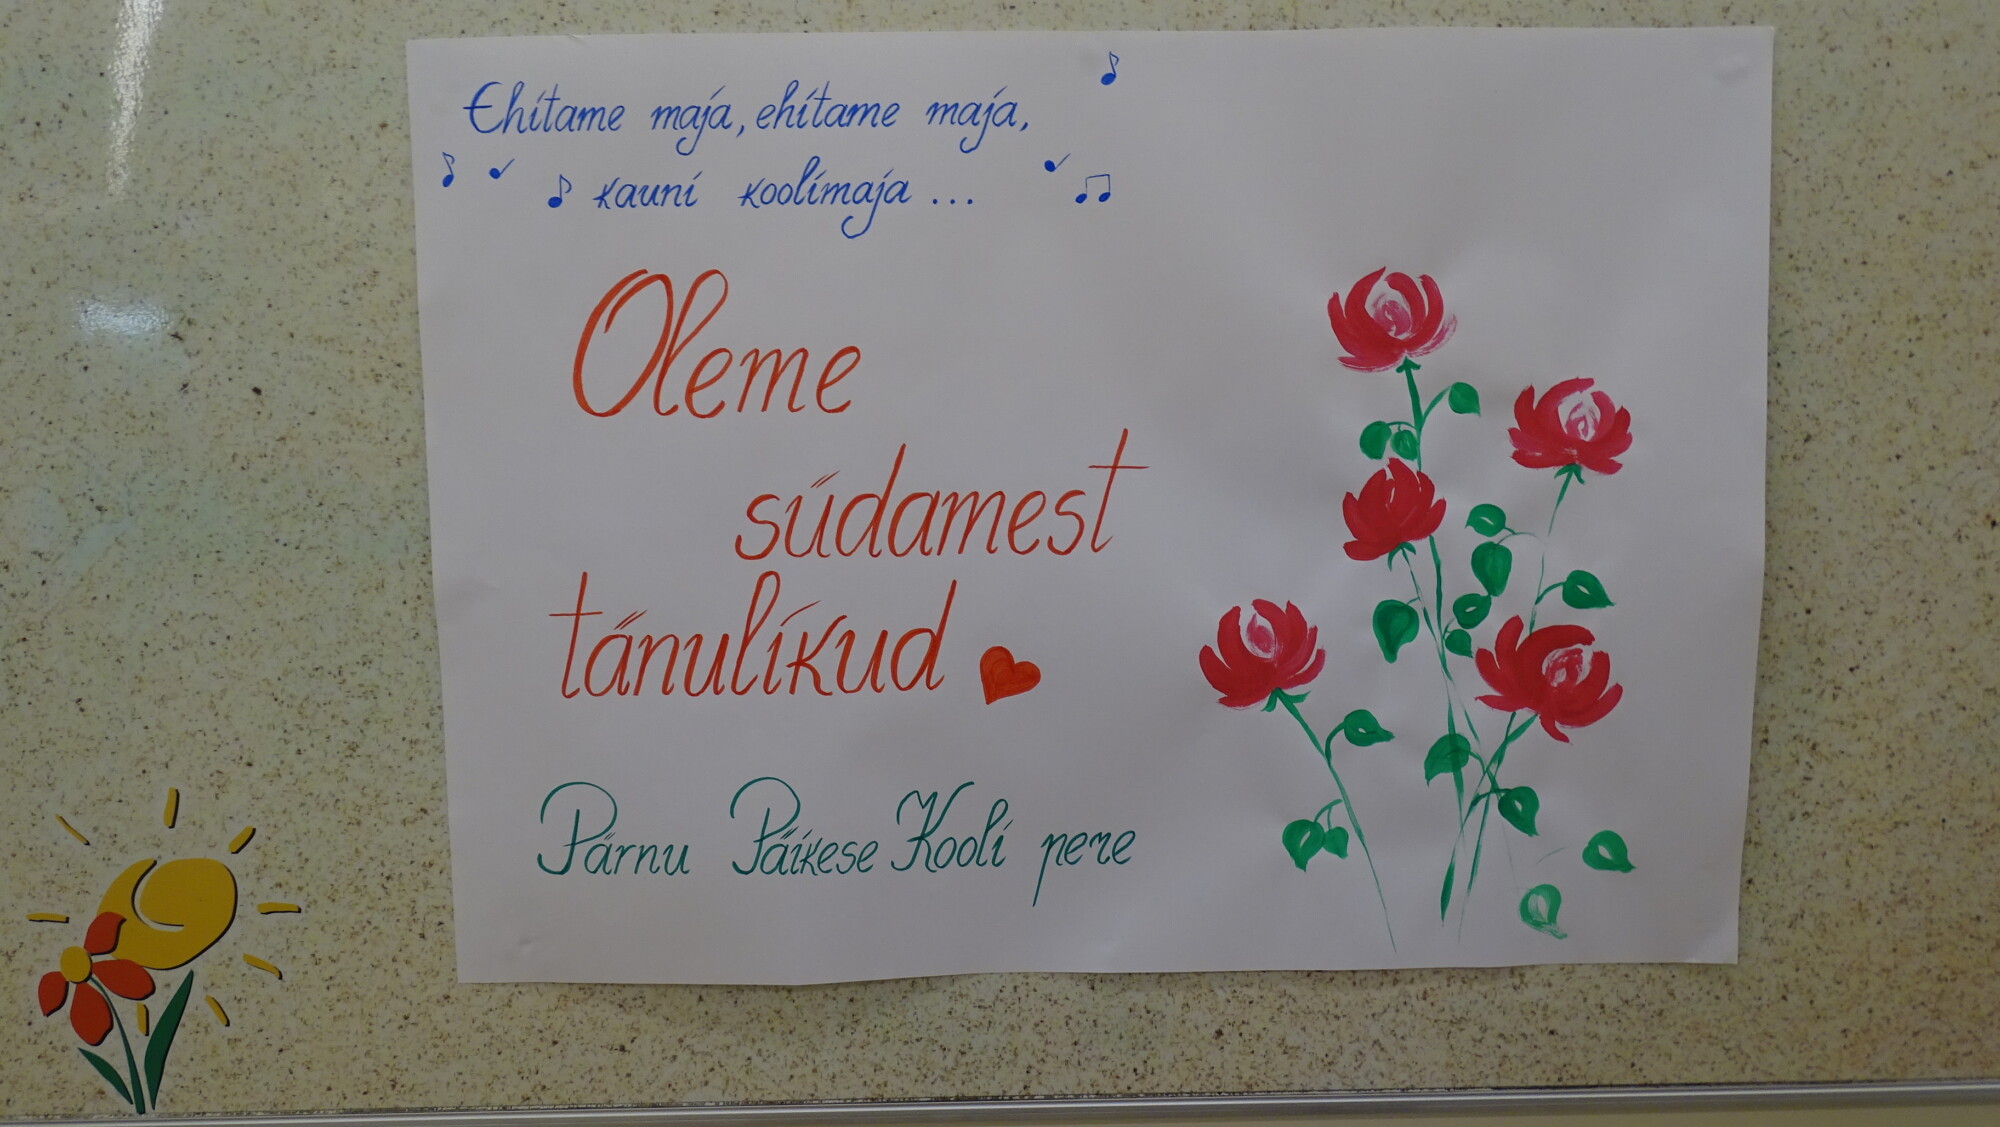 Ehitame maja, ehitame maja,
kauni koolimaja ...
Oleme
südamest
tänulikud
Pärnu Päikese Kooli pere